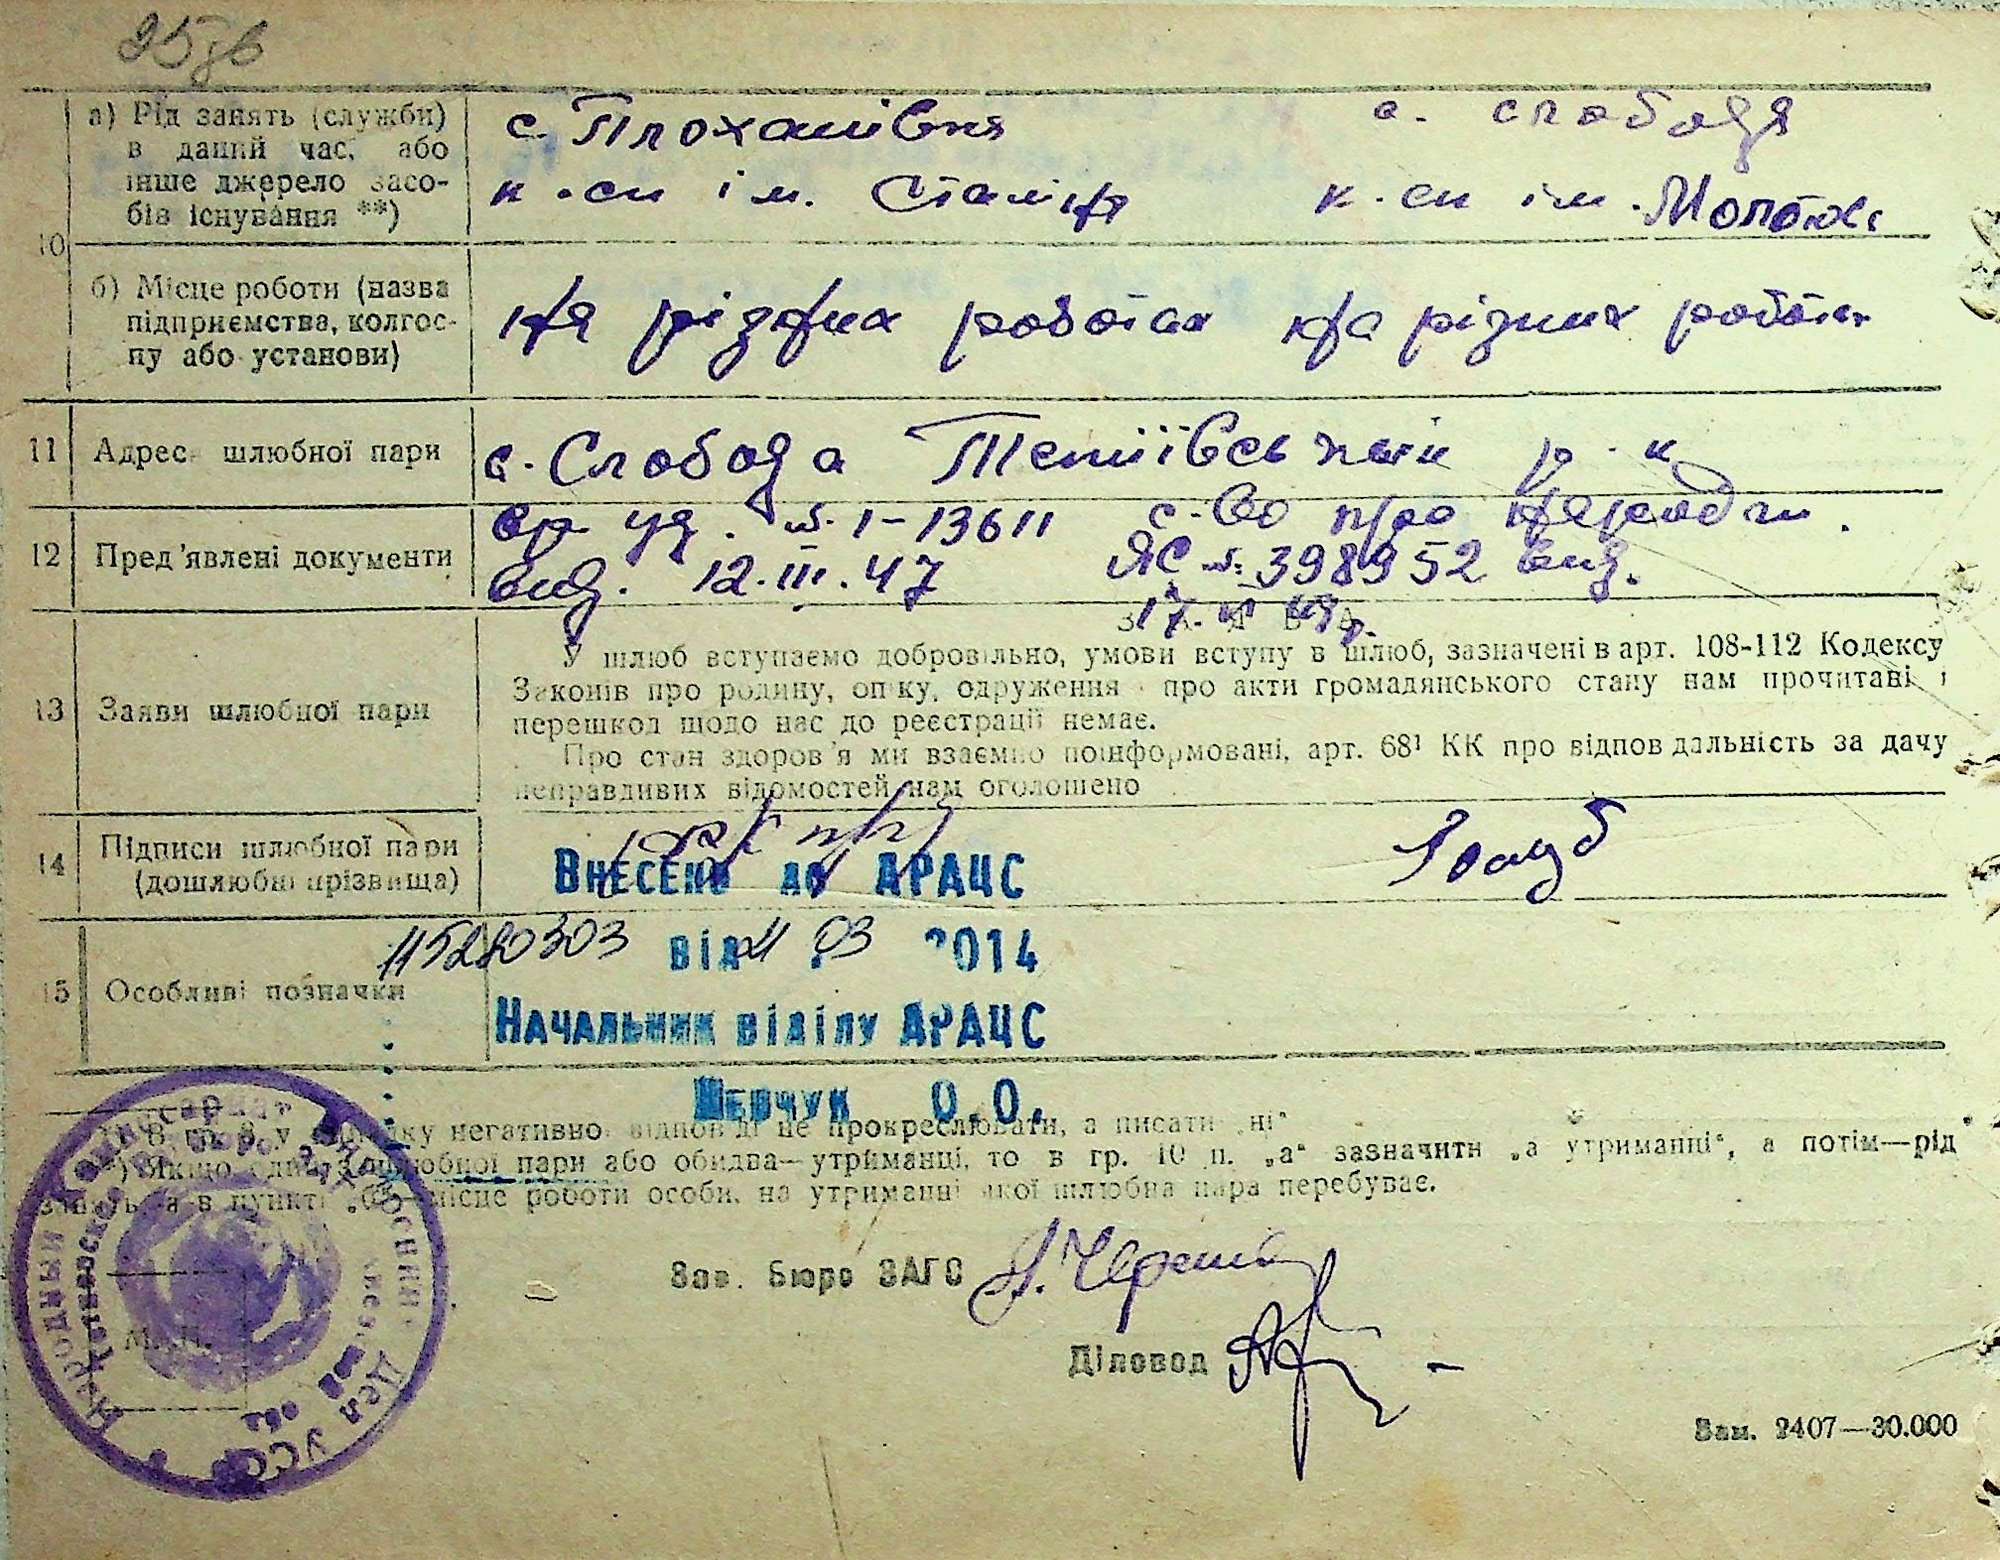 25зв
10
а) Рід занять (служби) в даний час, або інше джерело засобів існування **)
с. Плоханівка
к-сп ім. Сталіна
с. слобода
к-сп ім. Молот
б) Місце роботи (назва підприємства, колгоспу або установи)
на різних роботах
на різних роботах
11 Адрес шлюбної пари
с. Слобода Тетіївський р-н
12 Пред'явлені документи
вр уд. №. 1-13611
вид. 12.III.47
с-во про народжен.
ЯС №. 398952 вид.
17. 49р.
13 Заяви шлюбної пари
ЗАЯВА
У шлюб вступаємо добровільно, умови вступу в шлюб, зазначені в арт. 108-112 Кодексу
Законів про родину, опіку, одруження і про акти громадянського стану нам прочитані і
перешкод щодо нас до реєстрації немає.
Про стан здоров'я ми взаємно поінформовані, арт. 68¹ КК про відповідальність за дачу
неправдивих відомостей нам оголошено
14 Підписи шлюбної пари (дошлюбні прізвища)
Голуб
Внесено до ДРАЦС
115220303 від 21 03 2014
15 Особливі позначки
Начальник відділу ДРАЦС
Шевчук О.О.
*) В гр. 8 у випадку негативної відповіді не прокреслювати, а писати „ні“
**) Якщо один з шлюбної пари або обидва—утриманці, то в гр. 10 п. „а“ зазначити „а утриманні“, а потім—рід
занять, а в пункті „б“—місце роботи особи, на утриманні якої шлюбна пара перебуває.
Зав. Бюро ЗАГС
М. П.
Діловод
Зам. 2407—30.000